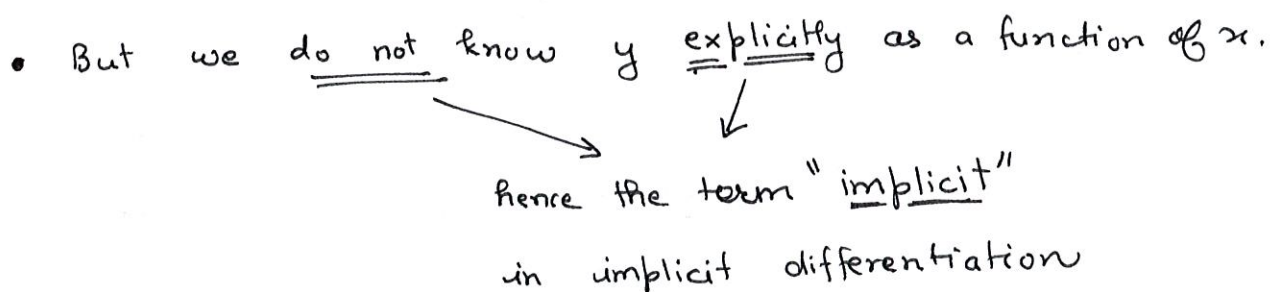 • But we do not know y explicitly as a function of x.
hence the term "implicit"
in implicit differentiation